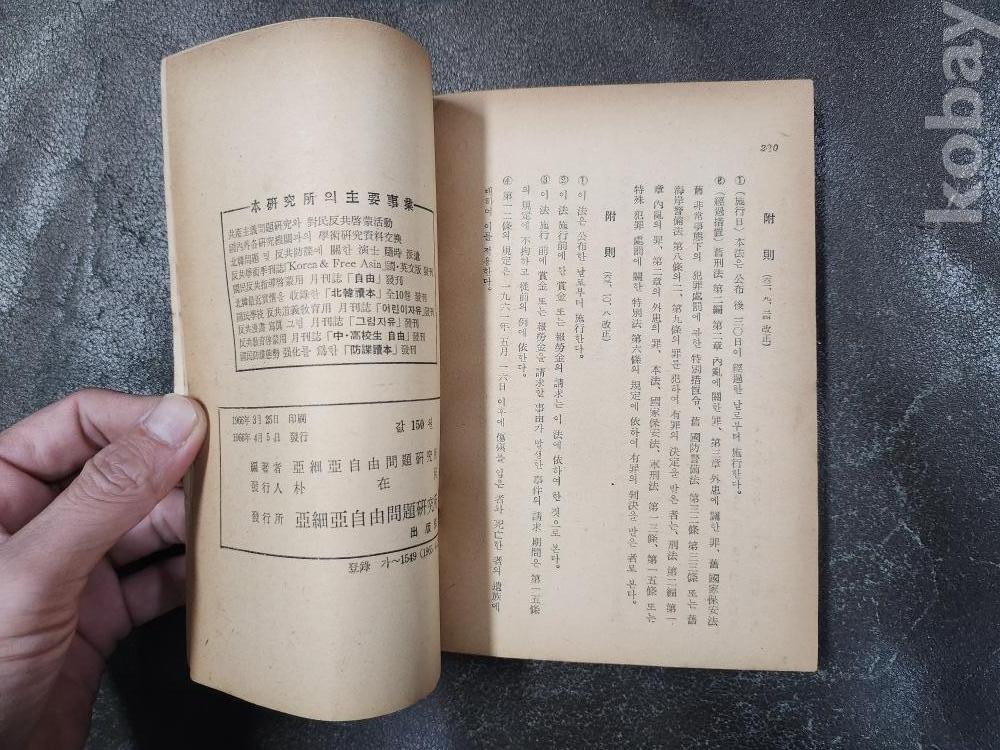 kobay
本硏究所의主要事業
共産主義問題硏究와 對民反共啓蒙活動
國內外各硏究機關과의 學術硏究資料交換
北韓問題 및 反共防諜에 關한 演士 隨時 派遣
反共學術季刊誌「Korea & Free Asia」國・英文版 發刊
國民反共指導啓蒙用 月刊誌「自由」發刊
北韓最近實情을 收錄한「北韓讀本」全10卷 發刊
國民學校 反共道義敎育用 月刊誌「어린이자유」發刊
反共漫畵 寫眞 그림 月刊誌「그림자유」發刊
反共敎育啓蒙用 月刊誌「中・高校生 自由」發刊
國民防諜態勢 强化를 爲한「防諜讀本」發刊
1966年3月25日 印刷
1966年4月5日 發行
값 150원
編著者 亞細亞自由問題硏究所
發行人 朴 在
發行所 亞細亞自由問題硏究所
出版
登錄 가~1549
230
附則 (六二、九、二四 改正)
① (施行日) 本法은 公布 後 三〇日이 經過한 날로부터 施行한다。
② (經過措置) 舊刑法 第二編 第二章 內亂에 關한 罪、第三章 外患에 關한 罪、舊 國家保安法
舊 非常事態下의 犯罪處罰에 關한 特別措置令、舊 國防警備法 第三二條 第三三條 또는 舊
海岸警備法 第八條의二、第九條의 罪를 犯하여 有罪의 決定을 받은 者는、刑法 第二編 第一
章 內亂의 罪、第二章의 外患의 罪、本法、國家保安法、軍刑法 第一三條 第一五條 또는
特殊 犯罪 處罰에 關한 特別法 第六條의 規定에 依하여 有罪의 判決을 받은 者로 본다。
附則 (六三、一〇、八 改正)
① 이 法은 公布한 날로부터 施行한다。
② 이 法 施行前에 한 賞金 또는 報勞金의 請求는 이 法에 依하여 한 것으로 본다。
③ 이 法 施行 前에 賞金 또는 報勞金을 請求한 事由가 발생한 事件의 請求 期間은 第一五條
의 規定에 不拘하고 從前의 例에 依한다。
④ 第一二條의 規定은 一九六二年 五月 一六日 이후에 傷痍를 입은 者와 死亡한 者의 遺族에
대하여 이를 적용한다。